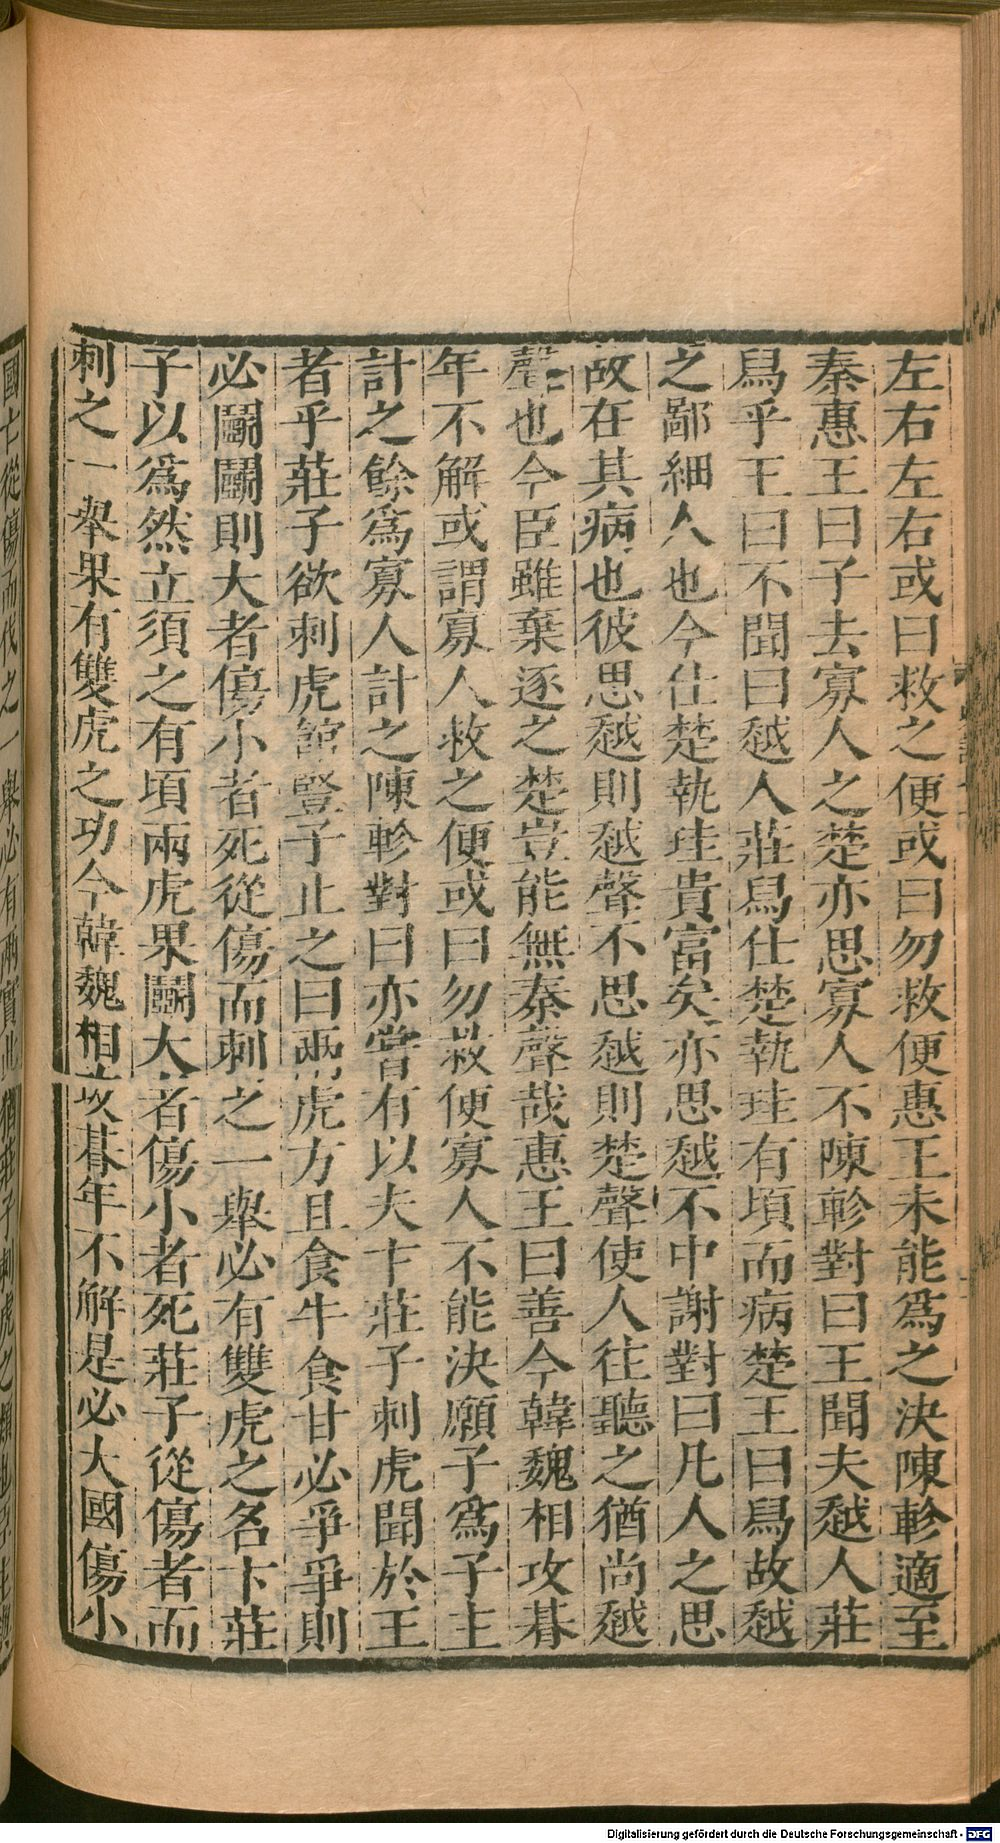 左右左右或曰救之便或曰勿救便惠王未能爲之決陳軫適至
秦惠王曰子去寡人之楚亦思寡人不陳軫對曰王聞夫越人莊
舄乎王曰不聞曰越人莊舄仕楚執珪有頃而病楚王曰舄故越
之鄙細人也今仕楚執珪貴富矣亦思越不中謝對曰凡人之思
故在其病也彼思越則越聲不思越則楚聲使人往聽之猶尚越
聲也今臣雖棄逐之楚豈能無秦聲哉惠王曰善今韓魏相攻朞
年不解或謂寡人救之便或曰勿救便寡人不能決願子爲子主
計之餘爲寡人計之陳軫對曰亦嘗有以夫卞莊子刺虎聞於王
者乎莊子欲刺虎館豎子止之曰兩虎方且食牛食甘必爭爭則
必鬭鬭則大者傷小者死從傷而刺之一舉必有雙虎之名卞莊
子以爲然立須之有頃兩虎果鬭大者傷小者死莊子從傷者而
刺之一舉果有雙虎之功今韓魏相攻朞年不解是必大國傷小
國亡從傷而伐之一舉必有兩實此猶莊子刺虎之類也臣主與
Digitalisierung gefördert durch die Deutsche Forschungsgemeinschaft - DFG